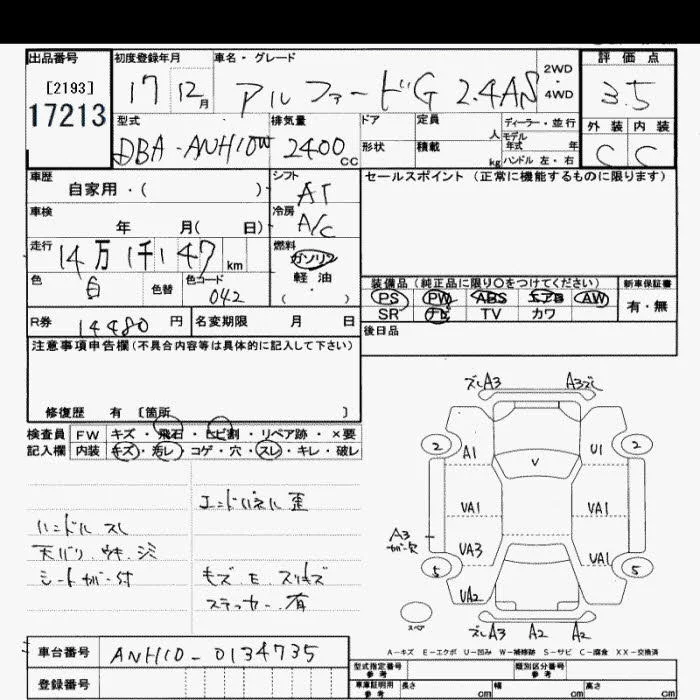 出品番号 初度登録年月 車名・グレード 2WD・4WD 評価点
[2193] 17 12月 アルファードG 2.4AS 3.5
17213
型式 排気量 ドア 定員 人 ディーラー・並行 外装 内装
DBA-ANH10W 2400cc 形状 積載 kg モデル年式 年 C C
ハンドル 左・右
車歴 シフト セールスポイント (正常に機能するものに限ります)
自家用・( ) AT
車検 年 月( 日) 冷房 A/C
走行 14万1千147km 燃料 ガソリン
色 白 色替 色コード 042 軽油 ( )
装備品 (純正品に限り○をつけてください) 新車保証書
PS PW ABS エアB AW 有・無
SR ナビ TV カワ
R券 14480円 名変期限 月 日 後日品
注意事項申告欄(不具合内容等は具体的に記入して下さい)
修復歴 有 〔箇所 〕
検査員 FW キズ・飛石・ヒビ割・リペア跡・×要
記入欄 内装 キズ・汚レ・コゲ・穴・スレ・キレ・破レ
エンドパネル歪
ハンドルスレ
天バリ.ウキ.シミ
シートカバー付 モズ.E.スリキズ
ステッカー有
ズレA3 A3ズレ
2 2
A1 U1
V
UA1 UA1
A3 カバー欠
UA3 UA1
5 5
UA2
スペア
ズレA3 A2 A2
A-キズ E-エクボ U-凹み W-補修跡 S-サビ C-腐食 XX-交換済
車台番号 ANH10-0134735
登録番号
型式指定番号 参考 類別区分番号 参考
車庫証明用 参考 長さ cm 幅 cm 高さ cm